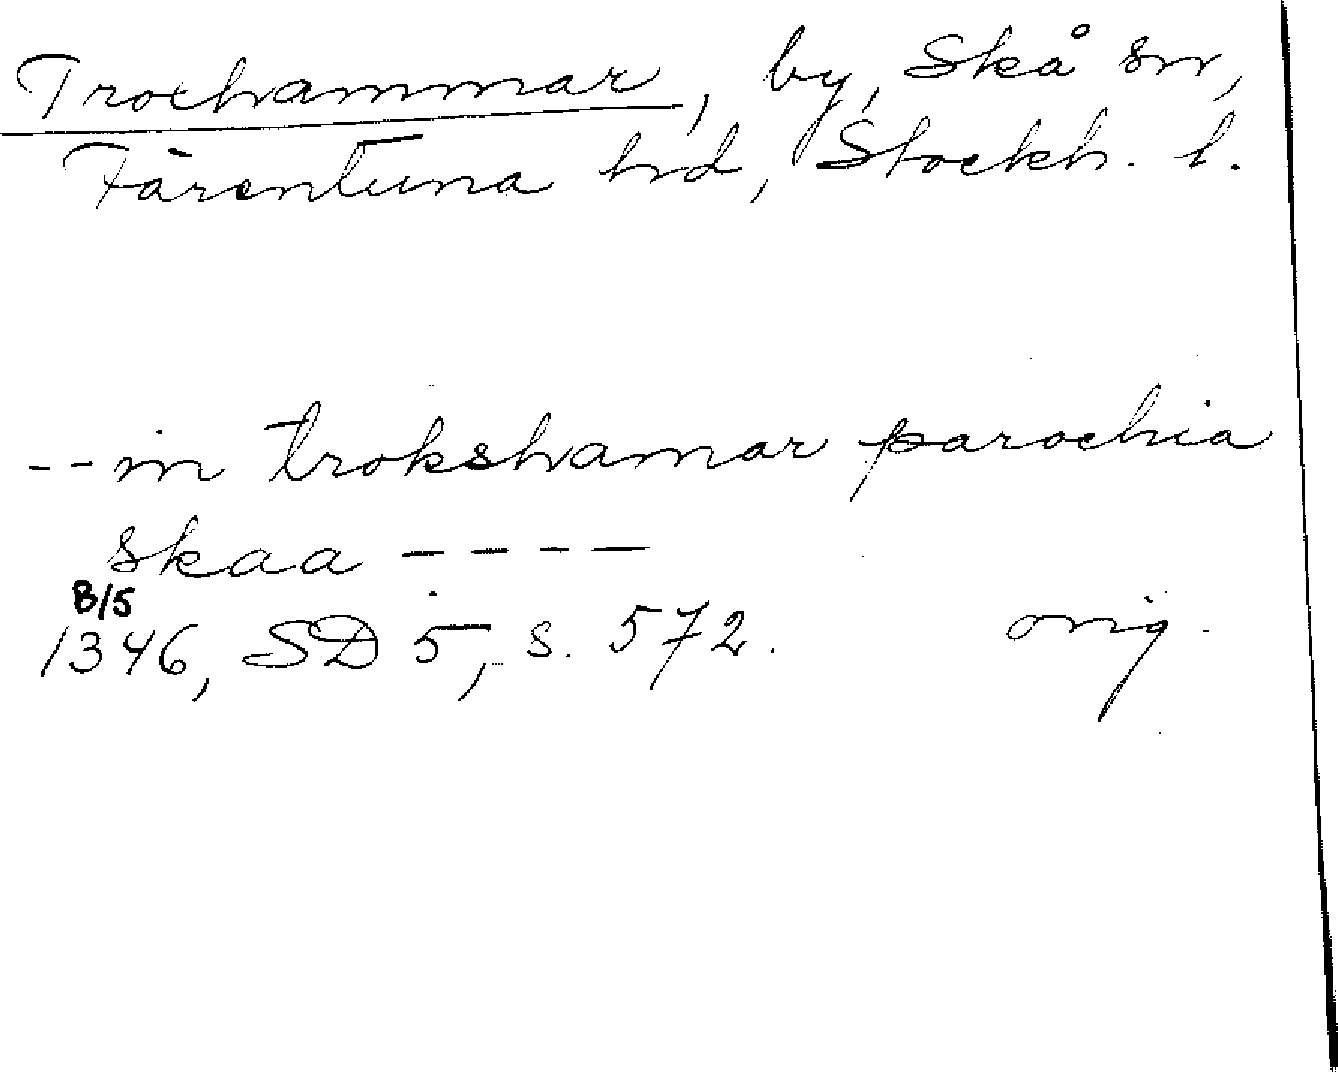 Troxhammar, by, Skå sn,
Färentuna hd, Stockh. l.
-- in trokshamar parochia
skaa ----
8/5
1346, SD 5, s. 572. orig.